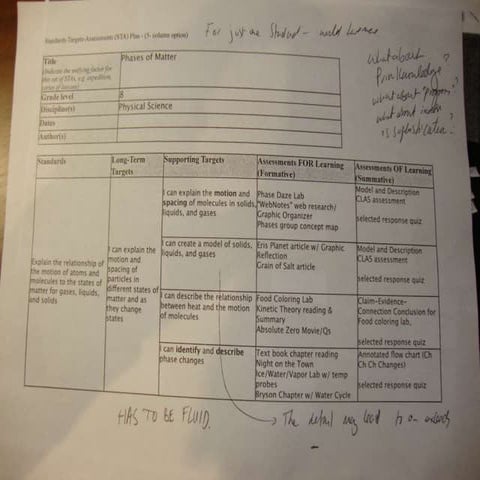 Standards-Targets-Assessments (STA) Plan - (5- column option)
For just one Student -
what about
Prior Knowledge?
what about "progress"?
what about
Title
(Indicate the unifying factor for
this set of STAs, e.g. expedition,
Phases of Matter
Grade level
8
Discipline(s)
Physical Science
Dates
Author(s)
Standards
Long-Term
Targets
Supporting Targets
Assessments FOR Learning
(Formative)
Assessments OF Learning
(Summative)
Explain the relationship of
the motion of atoms and
molecules to the states of
matter for gases, liquids,
and solids
I can explain the
motion and
spacing of
particles in
different states of
matter and as
they change
states
I can explain the motion and
spacing of molecules in solids,
liquids, and gases
Phase Daze Lab
"WebNotes" web research/
Graphic Organizer
Phases group concept map
Model and Description
CLAS assessment
selected response quiz
I can create a model of solids,
liquids, and gases
Eris Planet article w/ Graphic
Reflection
Grain of Salt article
Model and Description
CLAS assessment
selected response quiz
I can describe the relationship
between heat and the motion
of molecules
Food Coloring Lab
Kinetic Theory reading &
Summary
Absolute Zero Movie/Qs
Claim-Evidence-
Connection Conclusion for
Food coloring lab,
selected response quiz
I can identify and describe
phase changes
Text book chapter reading
Night on the Town
Ice/Water/Vapor Lab w/ temp
probes
Bryson Chapter w/ Water Cycle
Annotated flow chart (Ch
Ch Ch Changes)
selected response quiz
HAS TO BE FLUID.
The detail may lead to an